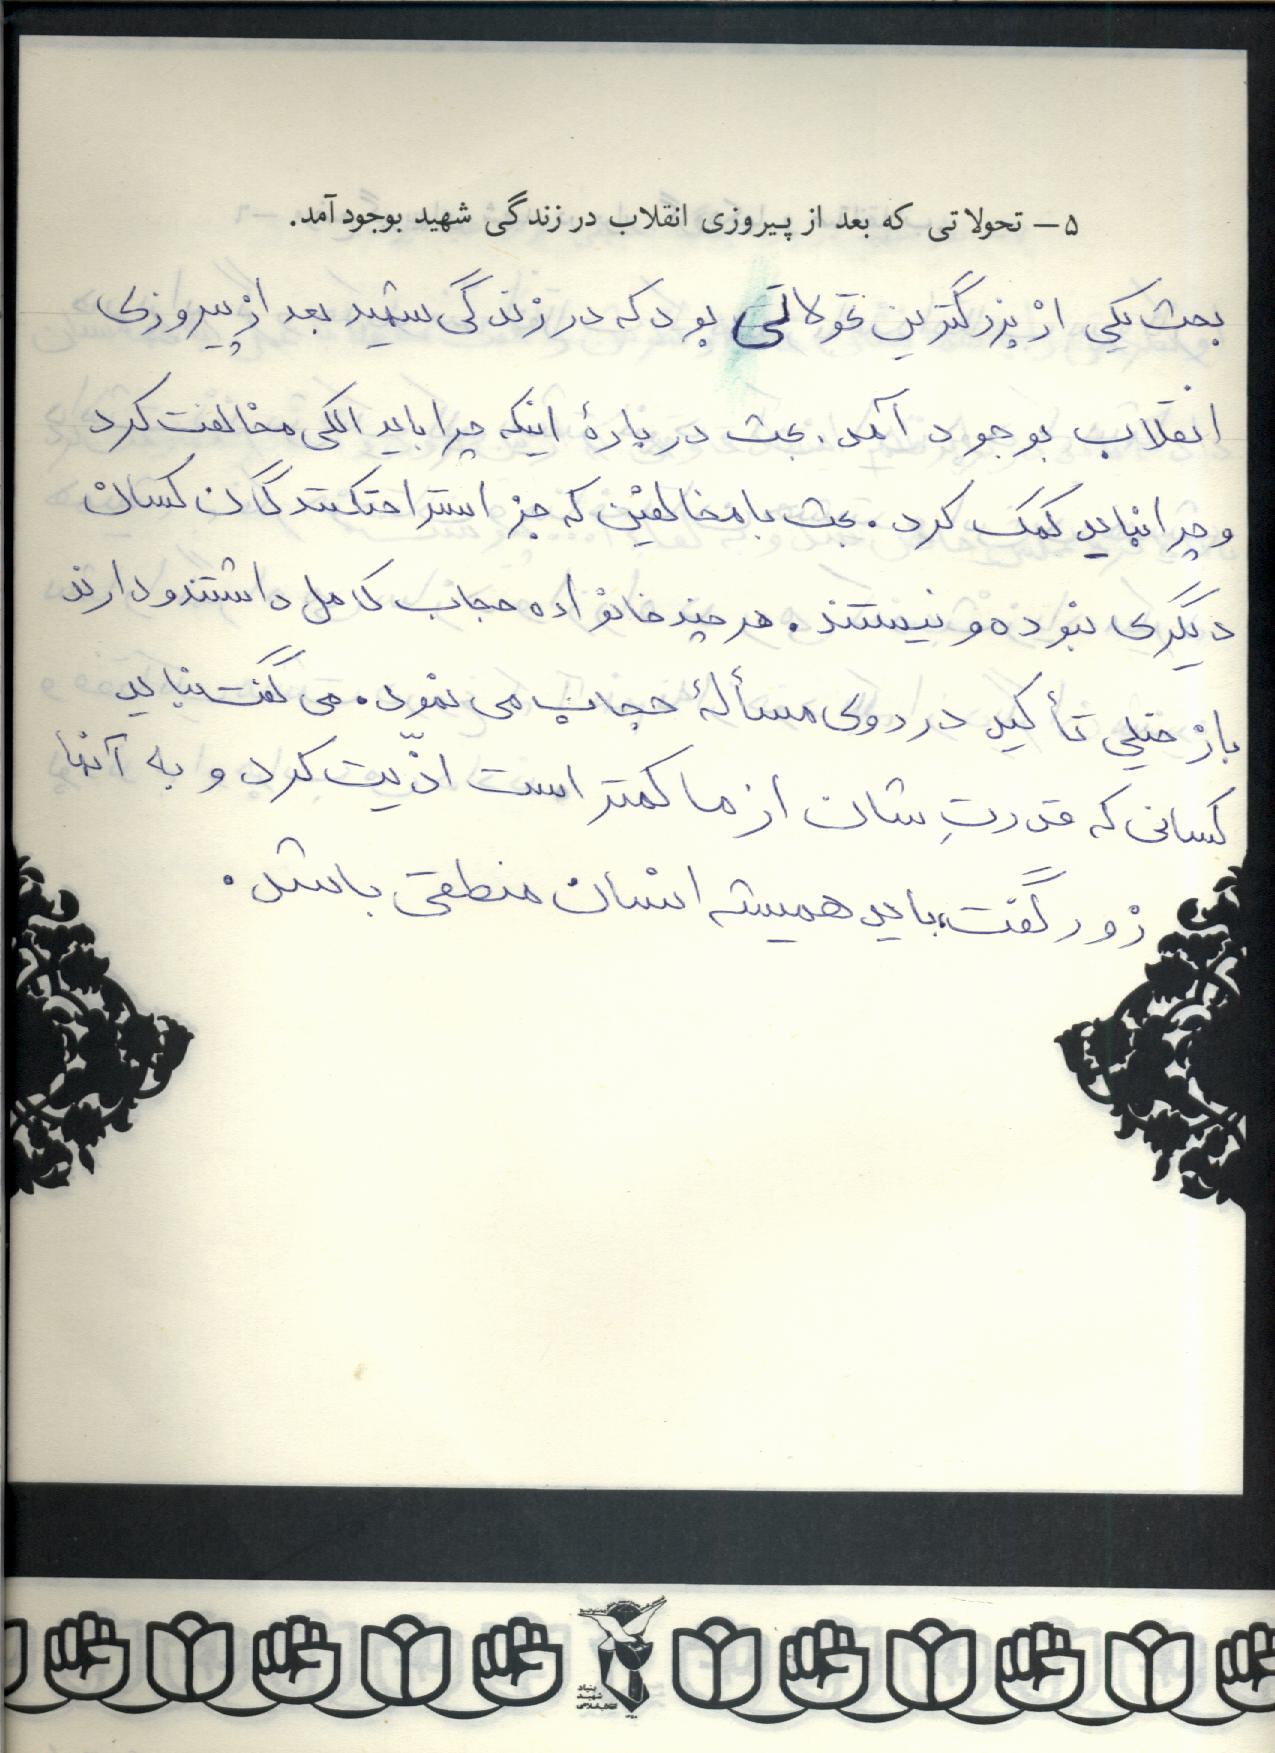 ۵ – تحولاتی که بعد از پیروزی انقلاب در زندگی شهید بوجود آمد.
بحث یکی از بزرگترین تحولاتی بود که در زندگی شهید بعد از پیروزی
انقلاب بوجود آمد. بحث دربارهٔ اینکه چرا باید الکی مخالفت کرد
و چرا نباید کمک کرد. بحث با مخالفین که جز استراحتکنندگان کسان
دیگری نبوده و نیستند. هر چند خانواده حجاب کامل داشتند و دارند
باز خیلی تأکید در روی مسألهٔ حجاب می نمود. می گفت نباید
کسانی که قدرتِ شان از ما کمتر است اذّیت کرد و به آنها
زور گفت، باید همیشه انسان منطقی باشد.
بنیاد
شهید
انقلاب اسلامی